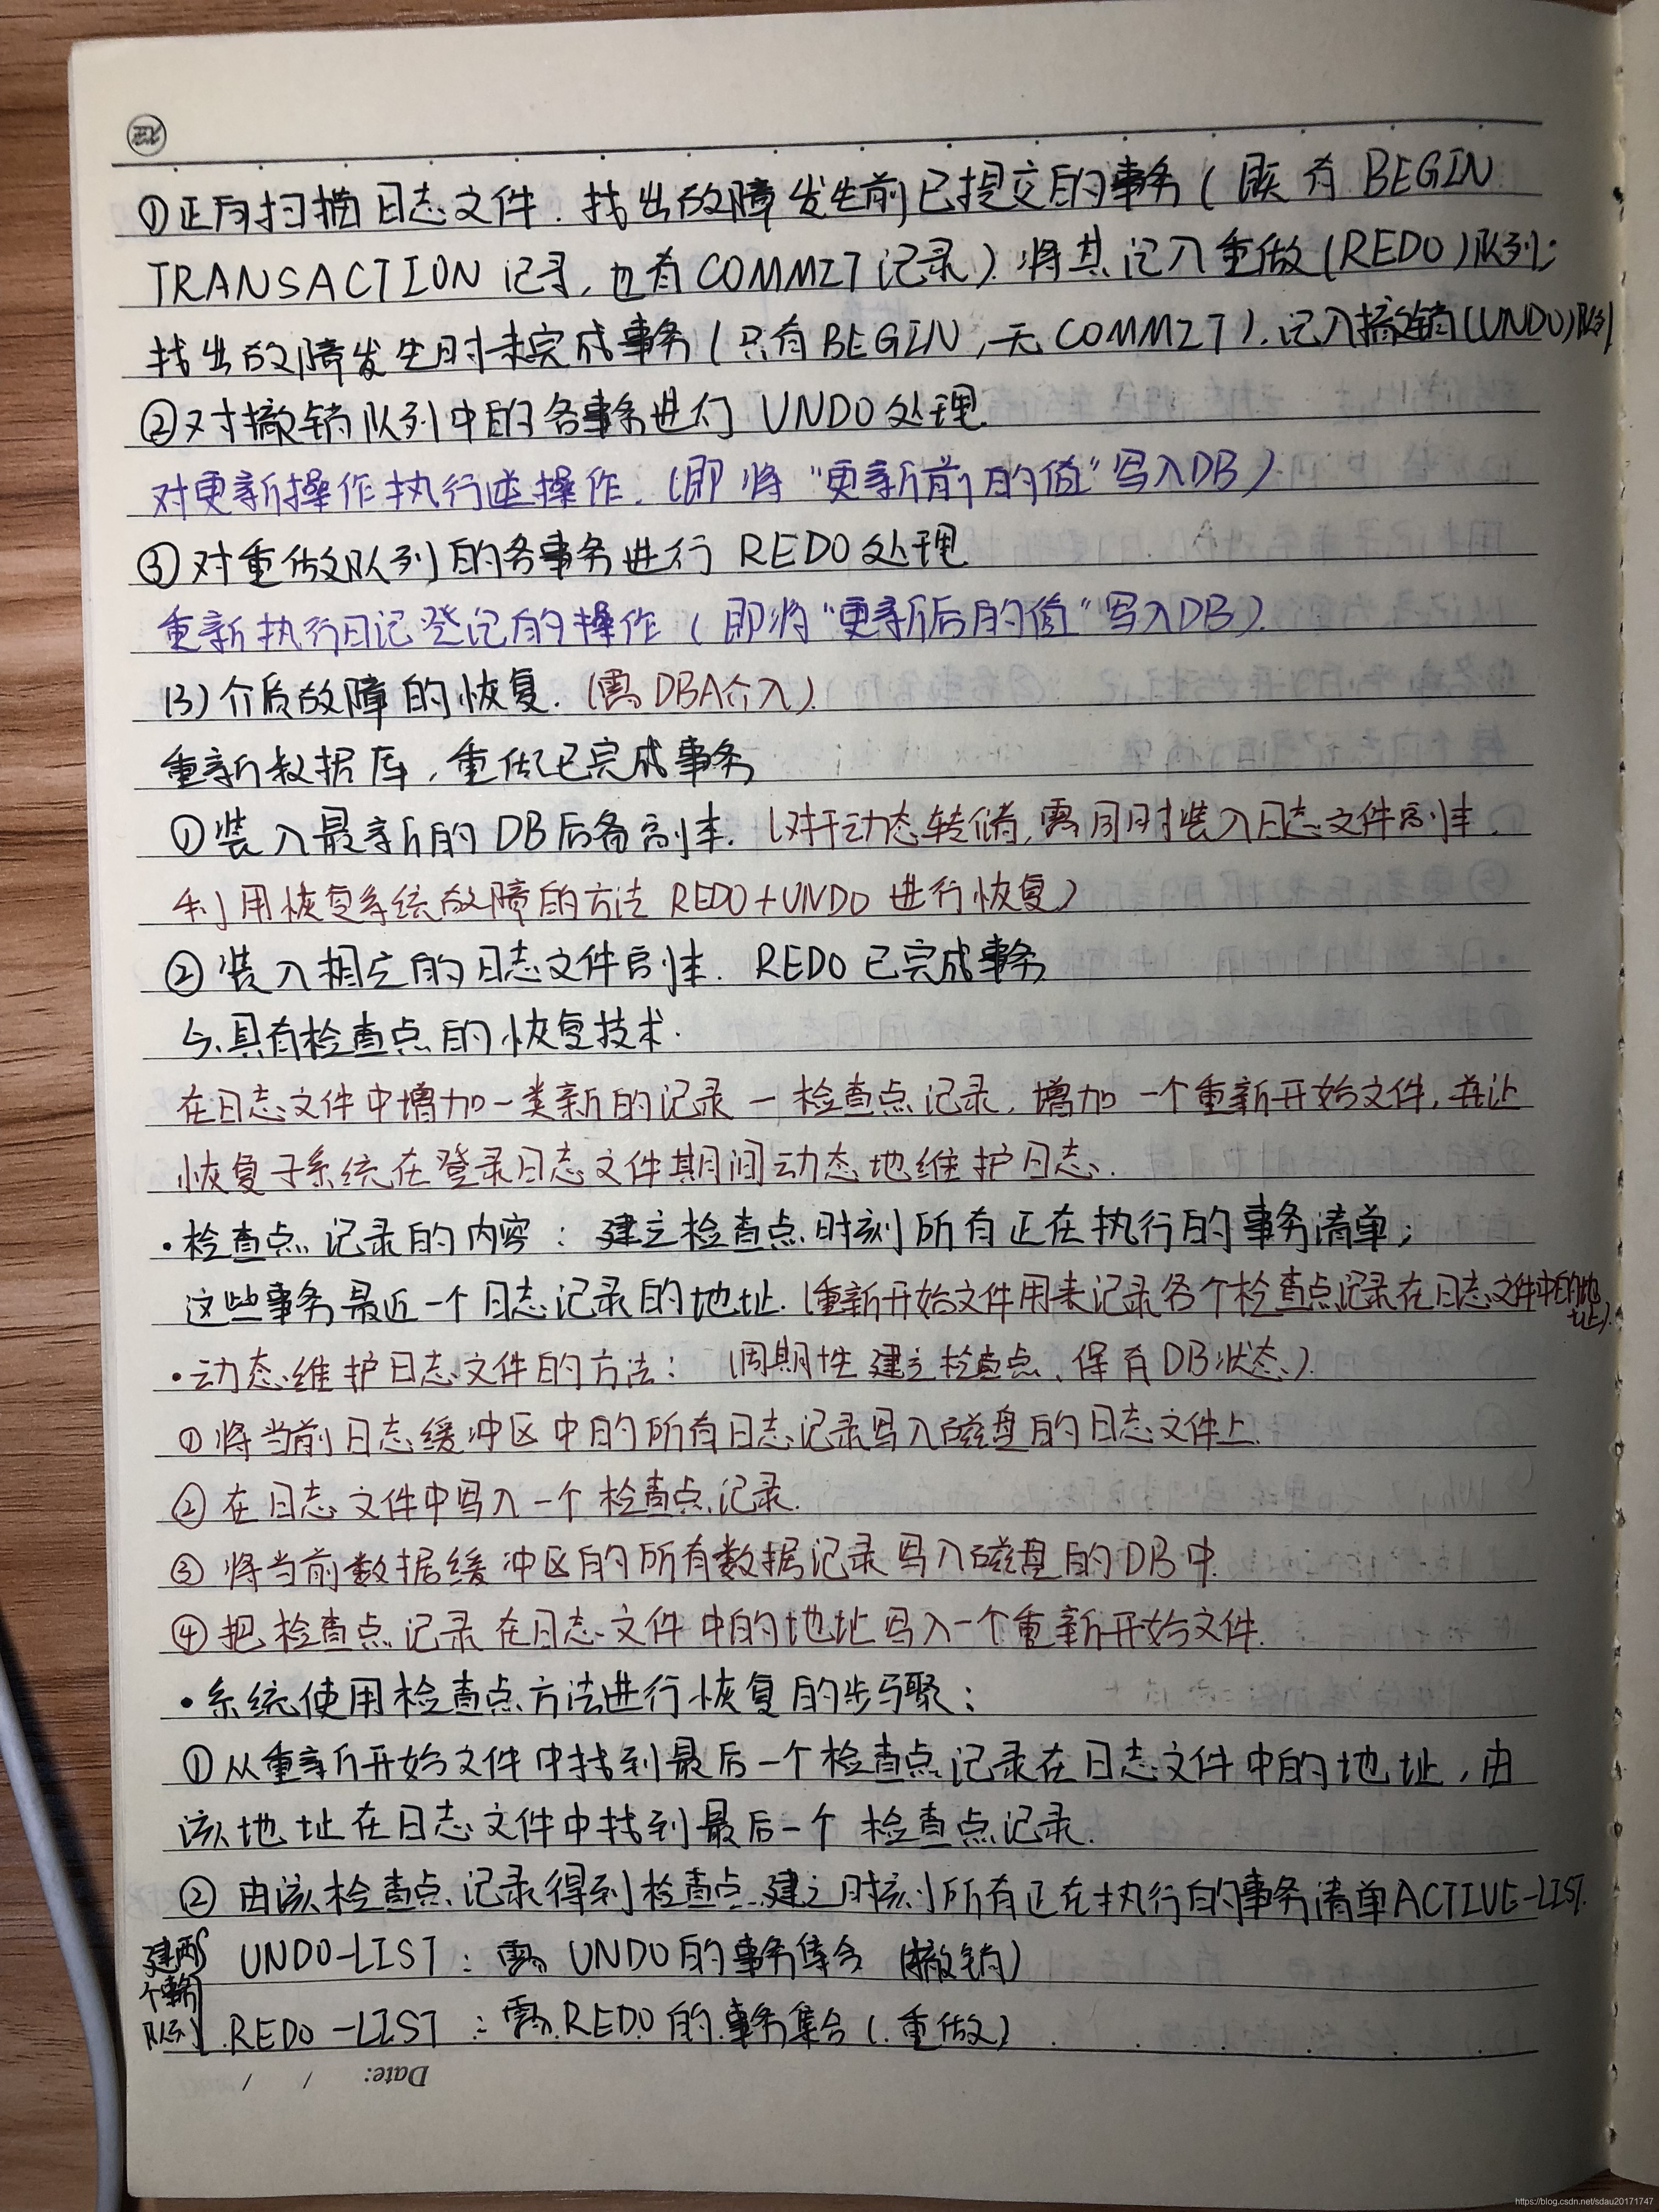 ①正向扫描日志文件.找出故障发生前已提交的事务(既有BEGIN
TRANSACTION记录,也有COMMIT记录).将其记入重做(REDO)队列;
找出故障发生时未完成事务(只有BEGIN,无COMMIT).记入撤销(UNDO)队列
②对撤销队列中的各事务进行UNDO处理
对更新操作执行逆操作.(即将"更新前的值"写入DB)
③对重做队列的各事务进行REDO处理
重新执行日记登记的操作(即将"更新后的值"写入DB).
(3)介质故障的恢复.(需DBA介入).
重新数据库,重做已完成事务
①装入最新的DB后备副本.(对于动态转储,需同时装入日志文件副本.
利用恢复系统故障的方法REDO+UNDO进行恢复)
②装入相应的日志文件副本.REDO已完成事务
5.具有检查点的恢复技术.
在日志文件中增加一类新的记录—检查点记录,增加一个重新开始文件,并让
恢复子系统在登录日志文件期间动态地维护日志.
·检查点记录的内容:建立检查点时刻所有正在执行的事务清单;
这些事务最近一个日志记录的地址.(重新开始文件用来记录各个检查点记录在日志文件中的地址).
·动态维护日志文件的方法:(周期性建立检查点、保存DB状态)
①将当前日志缓冲区中的所有日志记录写入磁盘的日志文件上.
②在日志文件中写入一个检查点记录.
③将当前数据缓冲区的所有数据记录写入磁盘的DB中.
④把检查点记录在日志文件中的地址写入一个重新开始文件.
·系统使用检查点方法进行恢复的步骤:
①从重新开始文件中找到最后一个检查点记录在日志文件中的地址,由
该地址在日志文件中找到最后一个检查点记录.
②由该检查点记录得到检查点建立时刻所有正在执行的事务清单ACTIVE-LIST.
建两个事务队列
UNDO-LIST:需UNDO的事务集合(撤销)
REDO-LIST:需REDO的事务集合(重做)
Date: / /
https://blog.csdn.net/sdau20171747